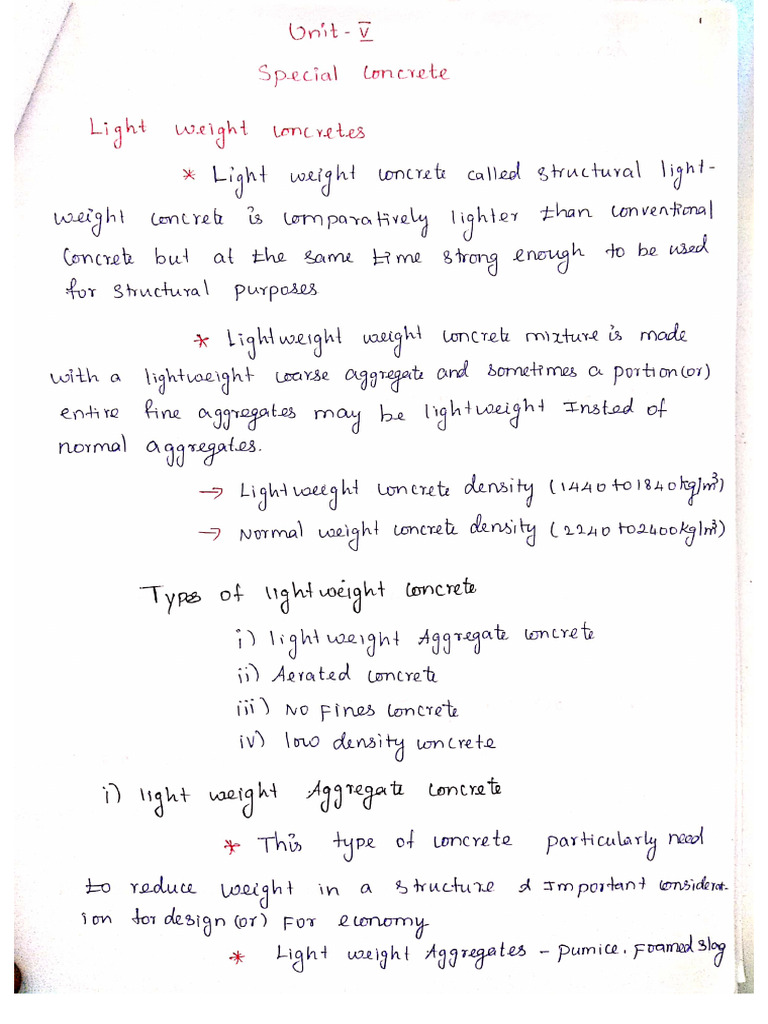 1
Unit - V
Special Concrete
Light weight concretes
* Light weight concrete called structural light-
weight concrete is comparatively lighter than conventional
concrete but at the same time strong enough to be used
for structural purposes
* Lightweight weight concrete mixture is made
with a lightweight coarse aggregate and sometimes a portion (or)
entire fine aggregates may be lightweight Insted of
normal aggregates.
→ Lightweight concrete density (1440 to 1840 kg/m³)
→ Normal weight concrete density (2240 to 2400 kg/m³)
Types of lightweight concrete
i) lightweight Aggregate concrete
ii) Aerated concrete
iii) No Fines concrete
iv) low density concrete
i) light weight Aggregate concrete
* This type of concrete particularly need
to reduce weight in a structure & Important considerat-
ion for design (or) For economy
* Light weight Aggregates - pumice. Foamed slag